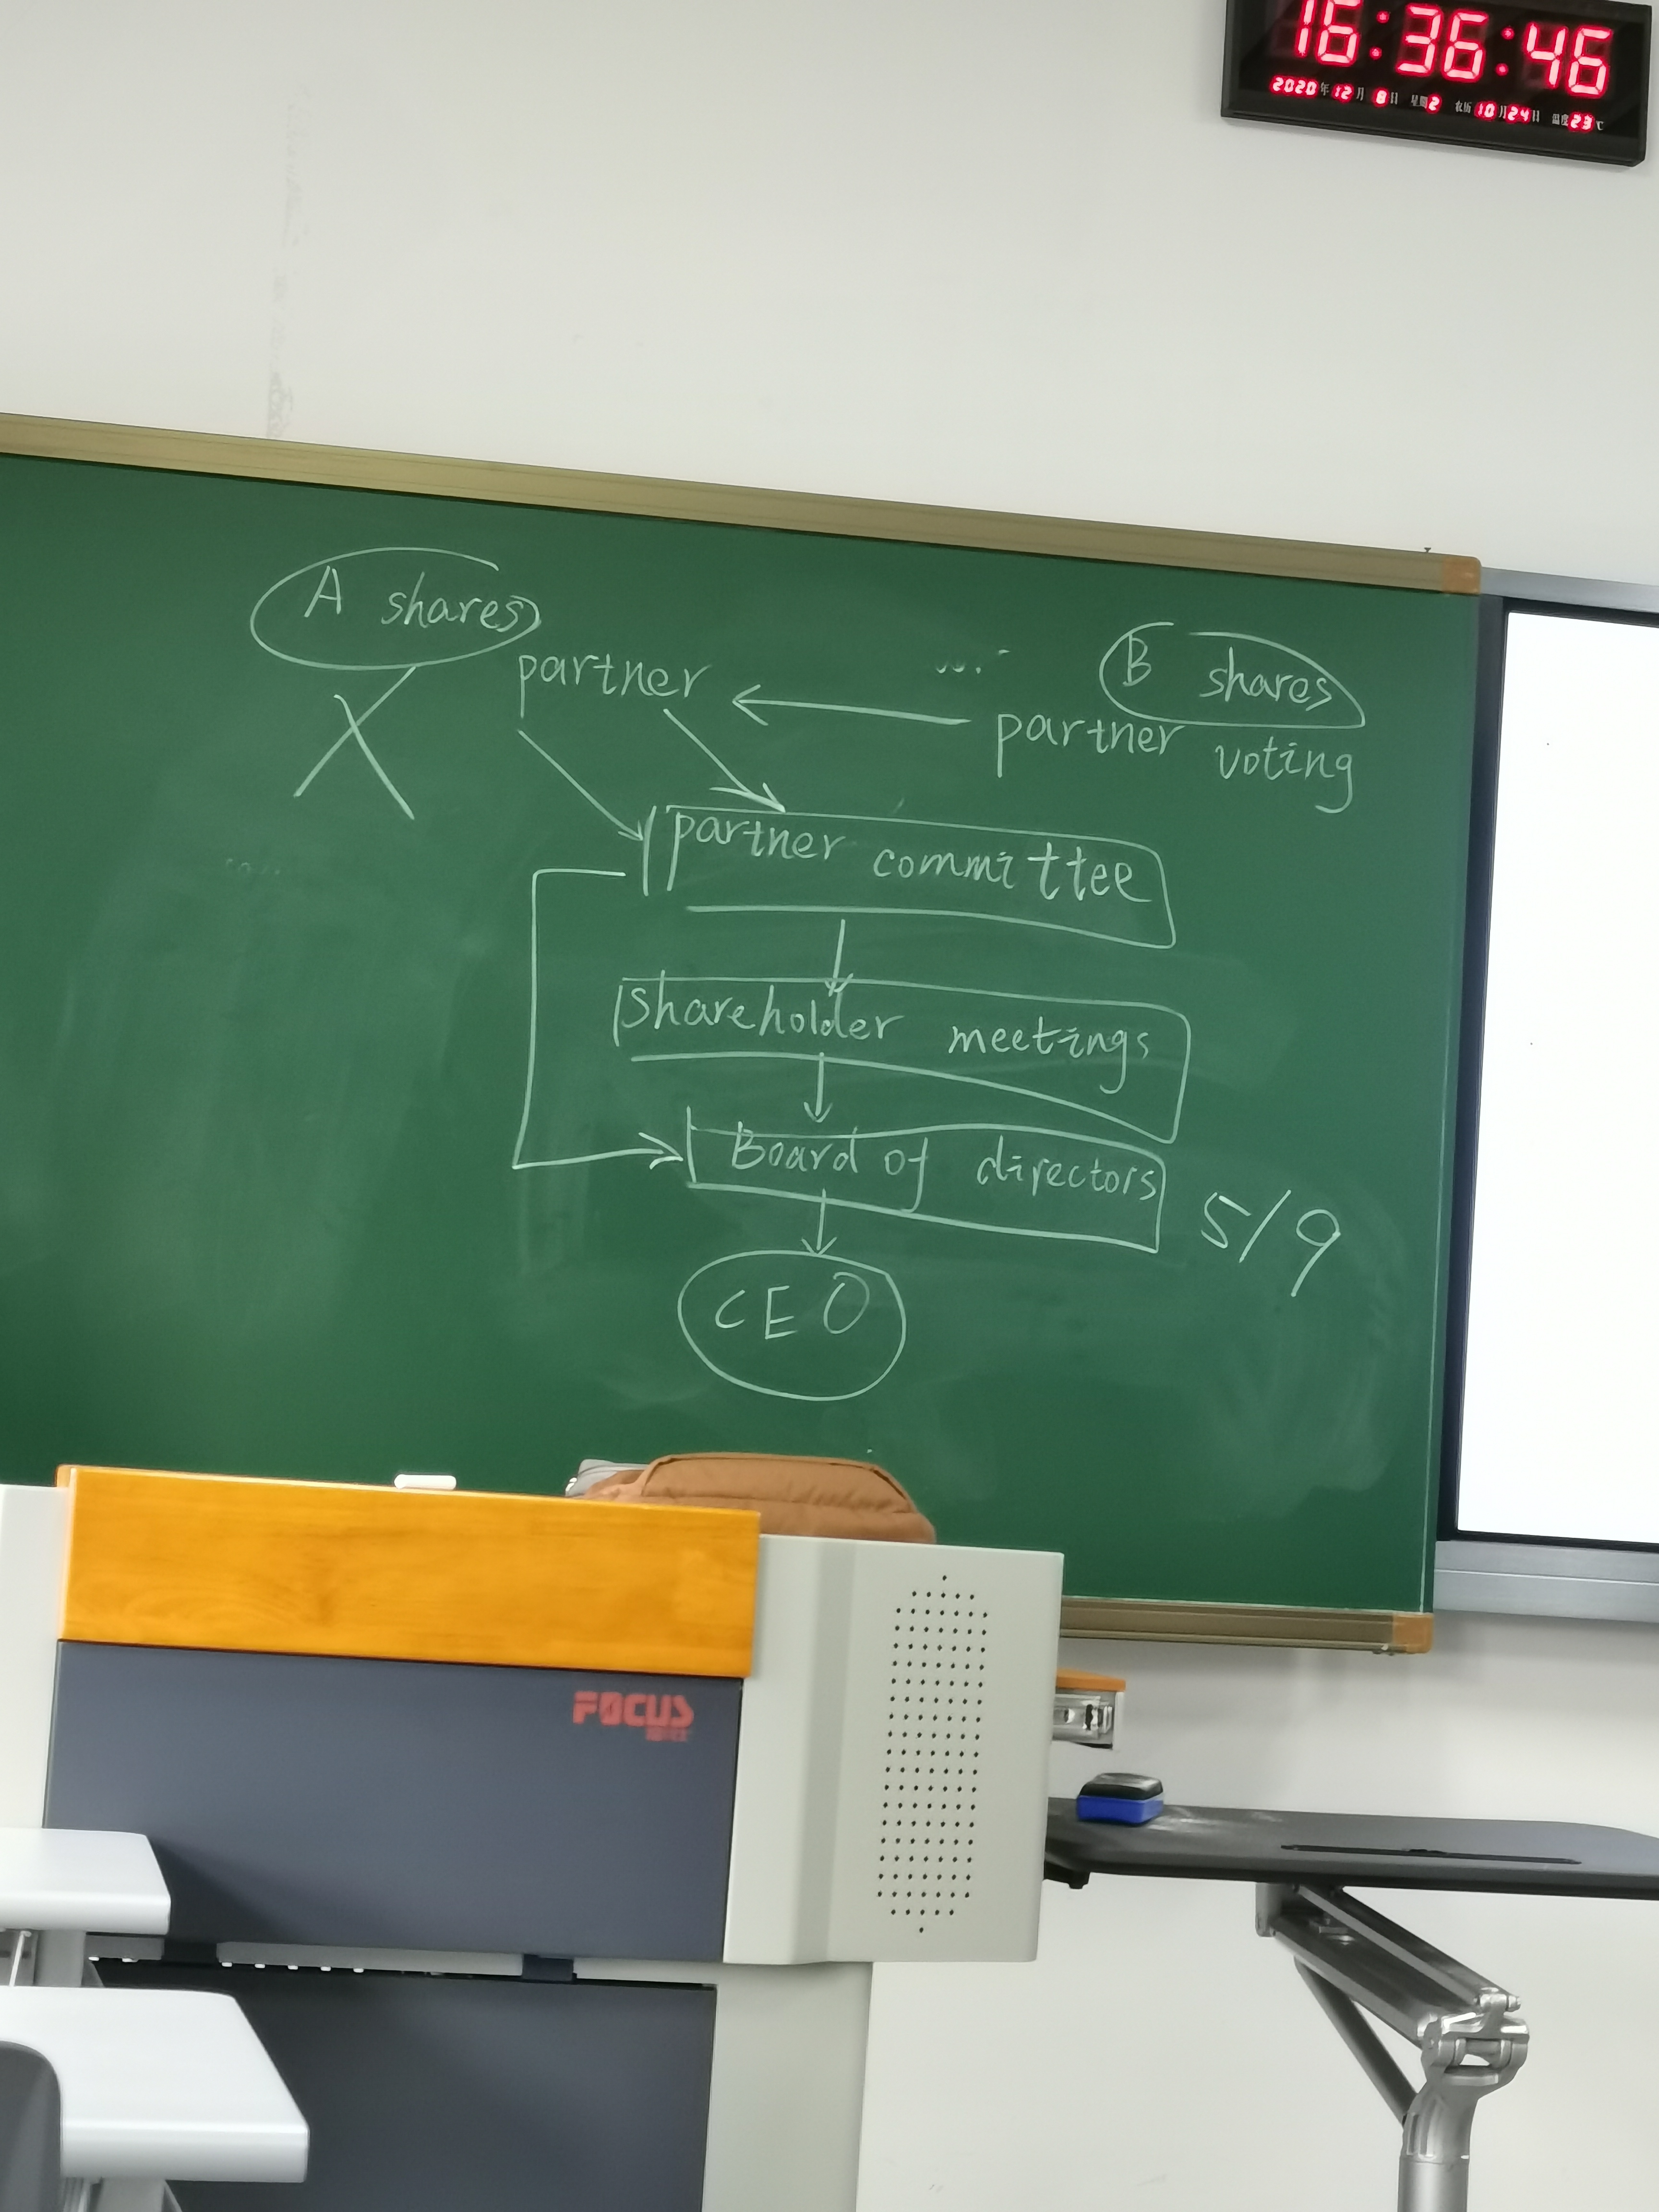 16:36:46
2020年12月8日 星期2 农历10月24日 温度23℃
A shares
B shares
partner
partner voting
partner committee
shareholder meetings
Board of directors
5/9
CEO
FOCUS